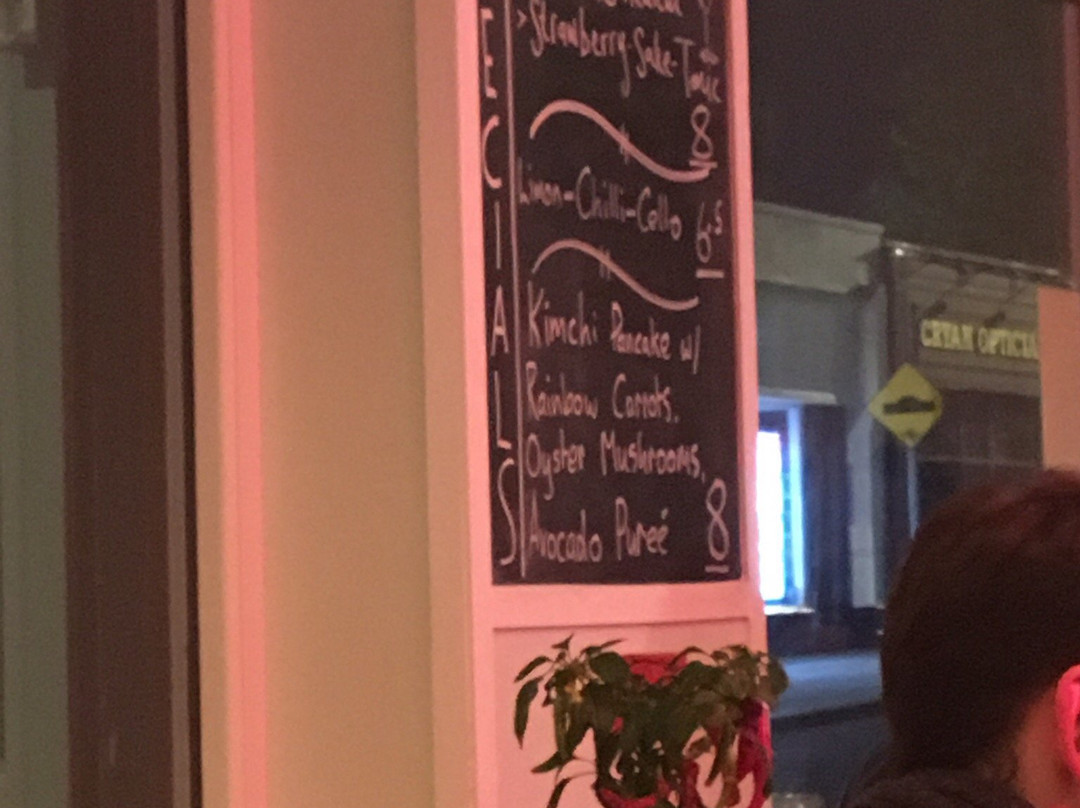 >Strawberry-Sake-Tonic
8
Limon-Chilli-Cello 6.5
Kimchi Pancake w/
Rainbow Carrots,
Oyster Mushrooms,
Avocado Pureé 8
E
C
I
A
L
S
CRYAN OPTICIA